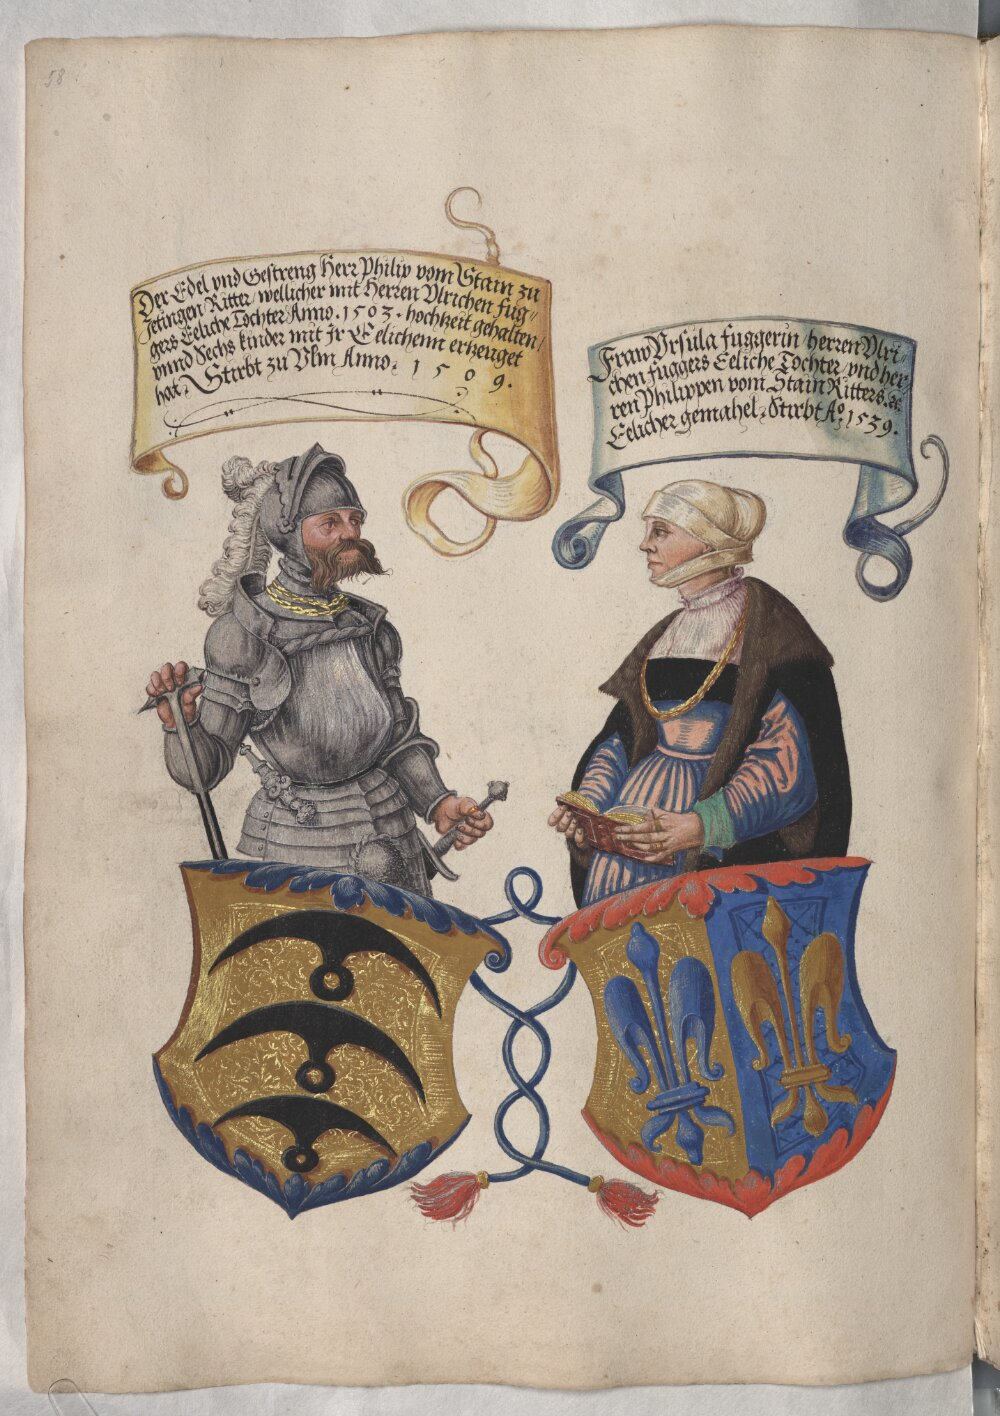 58
Der Edel vnd Gestreng Herr Philip vom Stain zu
Jetingen Ritter, wellicher mit Herren Vlrichen fug=
gers Eeliche Tochter Anno. 1503. hochzeit gehalten,
vnnd Sechs kinder mit jr Eelichenn erzeuget
hat. Stirbt zu Vlm Anno. 1509.
Fraw Vrsula fuggerin herren Vlri=
chen fuggers Eeliche Tochter, vnd her=
ren Philippen vom Stain Ritters. &c.
Eelicher gemahel. Stirbt Aº. 1539.